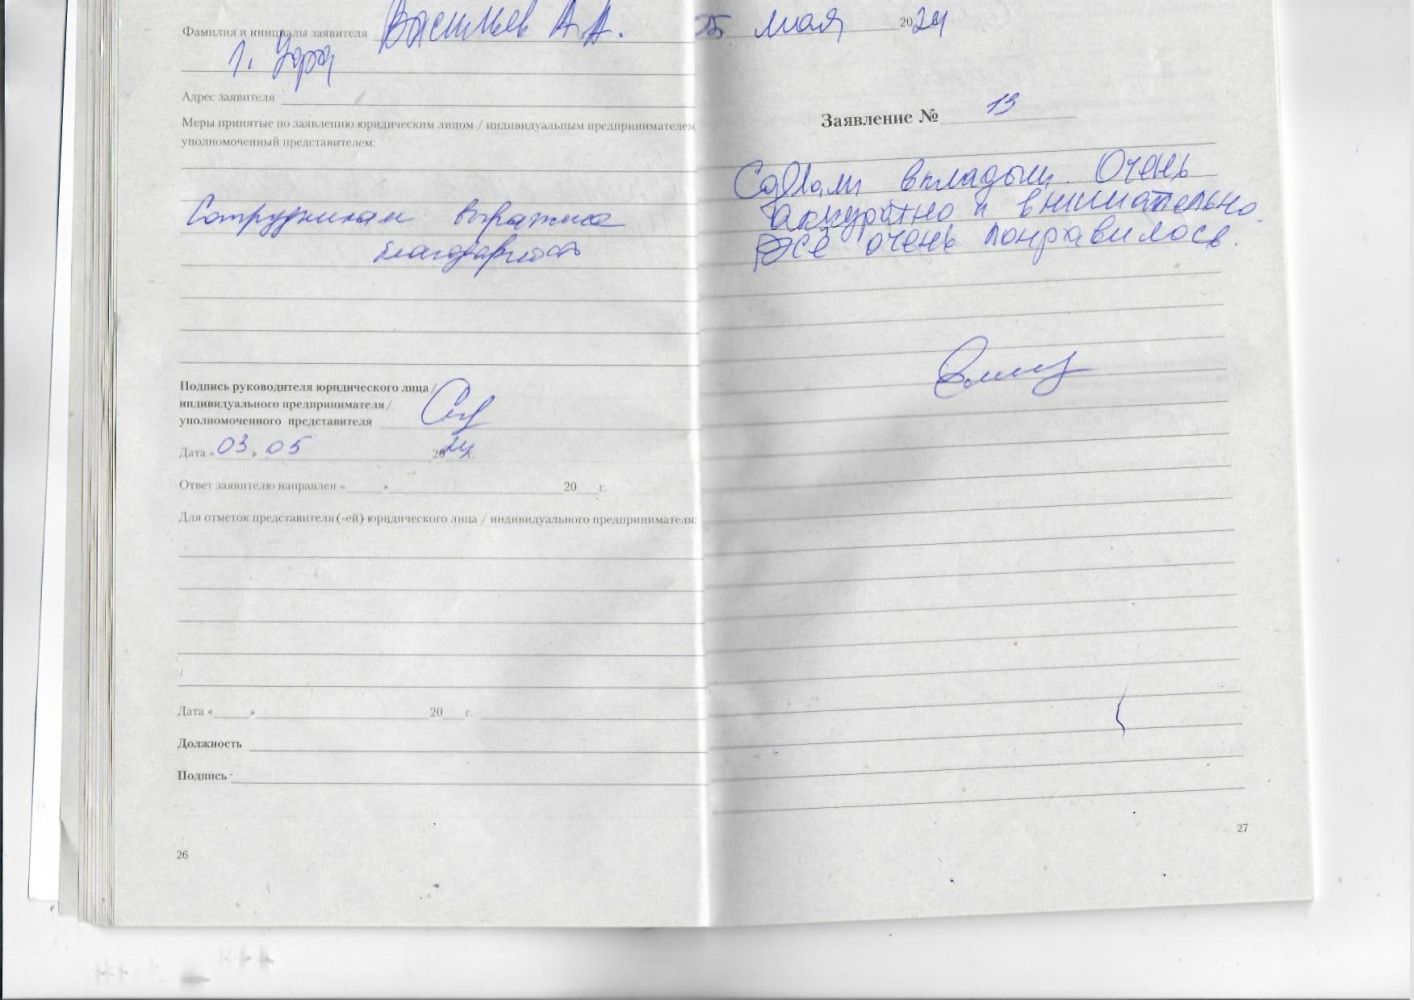 Фамилия и инициалы заявителя Васильев А.А.
г. Уфа
Адрес заявителя
Меры принятые по заявлению юридическим лицом / индивидуальным предпринимателем
уполномоченный представителем:
Сотрудникам выражена
благодарность
Подпись руководителя юридического лица/
индивидуального предпринимателя/
уполномоченного представителя
Дата «03» 05 2024 г.
Ответ заявителю направлен « » 20 г.
Для отметок представителя (-ей) юридического лица / индивидуального предпринимателя:
Дата « » 20 г.
Должность
Подпись
26
25 мая 2024
Заявление № 13
Сделали вкладыши. Очень
аккуратно и внимательно.
Всё очень понравилось.
27